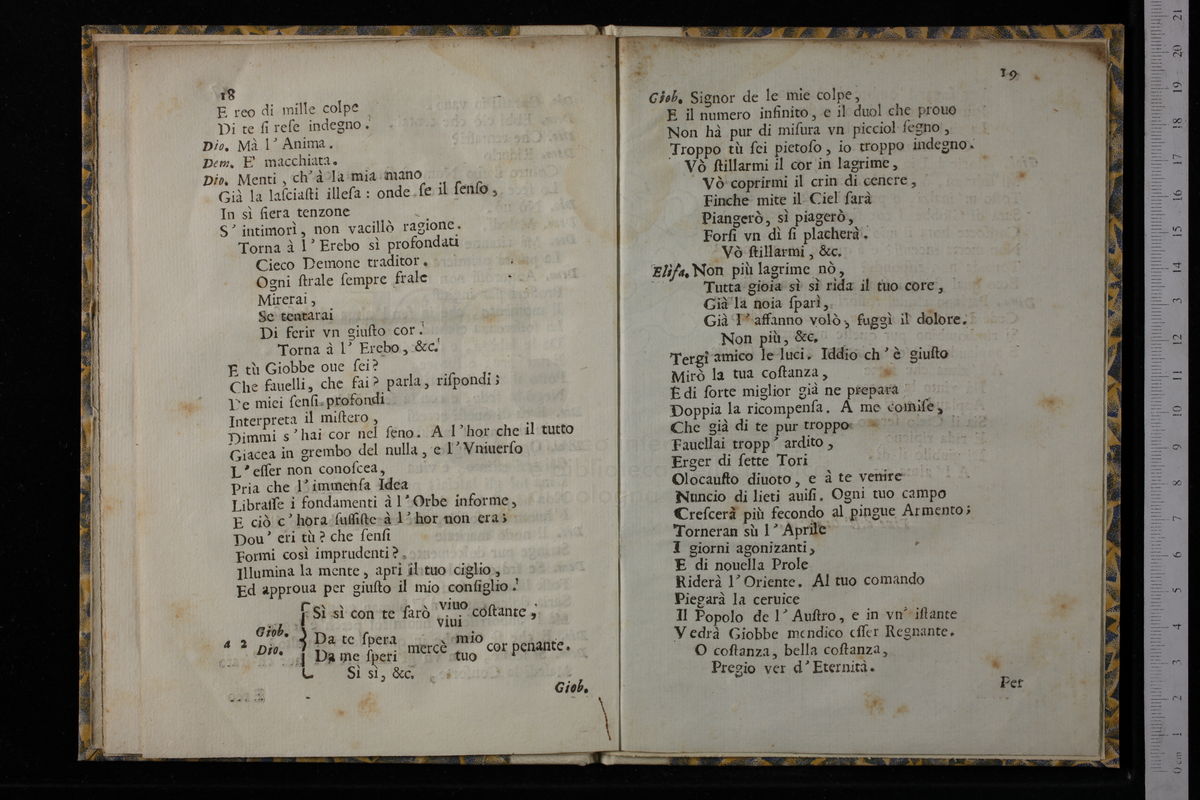 18
E reo di mille colpe
Di te ſi reſe indegno.
Dio. Mà l' Anima.
Dem. E' macchiata.
Dio. Menti, ch'à la mia mano
Già la laſciaſti illeſa : onde ſe il ſenſo,
In sì fiera tenzone
S' intimorì, non vacillò ragione.
Torna à l' Erebo sì profondati
Cieco Demone traditor.
Ogni ſtrale ſempre frale
Mirerai,
Se tentarai
Di ferir vn giuſto cor.
Torna à l' Erebo, &c.
E tù Giobbe oue ſei?
Che fauelli, che fai? parla, riſpondi;
De miei ſenſi profondi
Interpreta il miſtero,
Dimmi s'hai cor nel ſeno. A l'hor che il tutto
Giacea in grembo del nulla, e l'Vniuerſo
L' eſſer non conoſcea,
Pria che l'immenſa Idea
Libraſſe i fondamenti à l'Orbe informe,
E ciò c'hora ſuſſiſte à l'hor non era;
Dou' eri tù? che ſenſi
Formi così imprudenti?
Illumina la mente, apri il tuo ciglio,
Ed approua per giuſto il mio conſiglio.
Sì sì con te ſarò viuo coſtante,
viui
a 2 Giob. Da te ſpera mercè mio cor penante.
Dio. Da me ſperi tuo
Sì sì, &c.
Giob.
19
Giob. Signor de le mie colpe,
E il numero infinito, e il duol che prouo
Non hà pur di miſura vn picciol ſegno,
Troppo tù ſei pietoſo, io troppo indegno.
Vò ſtillarmi il cor in lagrime,
Vò coprirmi il crin di cenere,
Finche mite il Ciel ſarà
Piangerò, sì piagerò,
Forſi vn dì ſi placherà.
Vò ſtillarmi, &c.
Eliſa. Non più lagrime nò,
Tutta gioia sì sì rida il tuo core,
Già la noia ſparì,
Già l'affanno volò, fuggì il dolore.
Non più, &c.
Tergi amico le luci. Iddio ch'è giuſto
Mirò la tua coſtanza,
E di ſorte miglior già ne prepara
Doppia la ricompenſa. A me comiſe,
Che già di te pur troppo
Fauellai tropp' ardito,
Erger di ſette Tori
Olocauſto diuoto, e à te venire
Nuncio di lieti auiſi. Ogni tuo campo
Creſcerà più fecondo al pingue Armento;
Torneran sù l' Aprile
I giorni agonizanti,
E di nouella Prole
Riderà l'Oriente. Al tuo comando
Piegarà la ceruice
Il Popolo de l'Auſtro, e in vn' iſtante
Vedrà Giobbe mendico eſſer Regnante.
O coſtanza, bella coſtanza,
Pregio ver d'Eternità.
Per